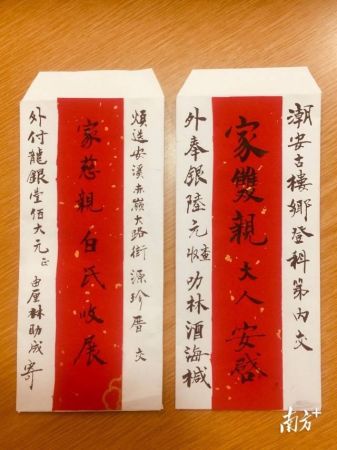 潮安古樓鄉登科第內交
家雙親大人安啓
外奉銀陸元查收 林酒海椷
煩送安溪赤嶺大路街源珍厝交
家慈親白氏收展
外付龍銀壹佰大元正 由厘林助成寄
南方+